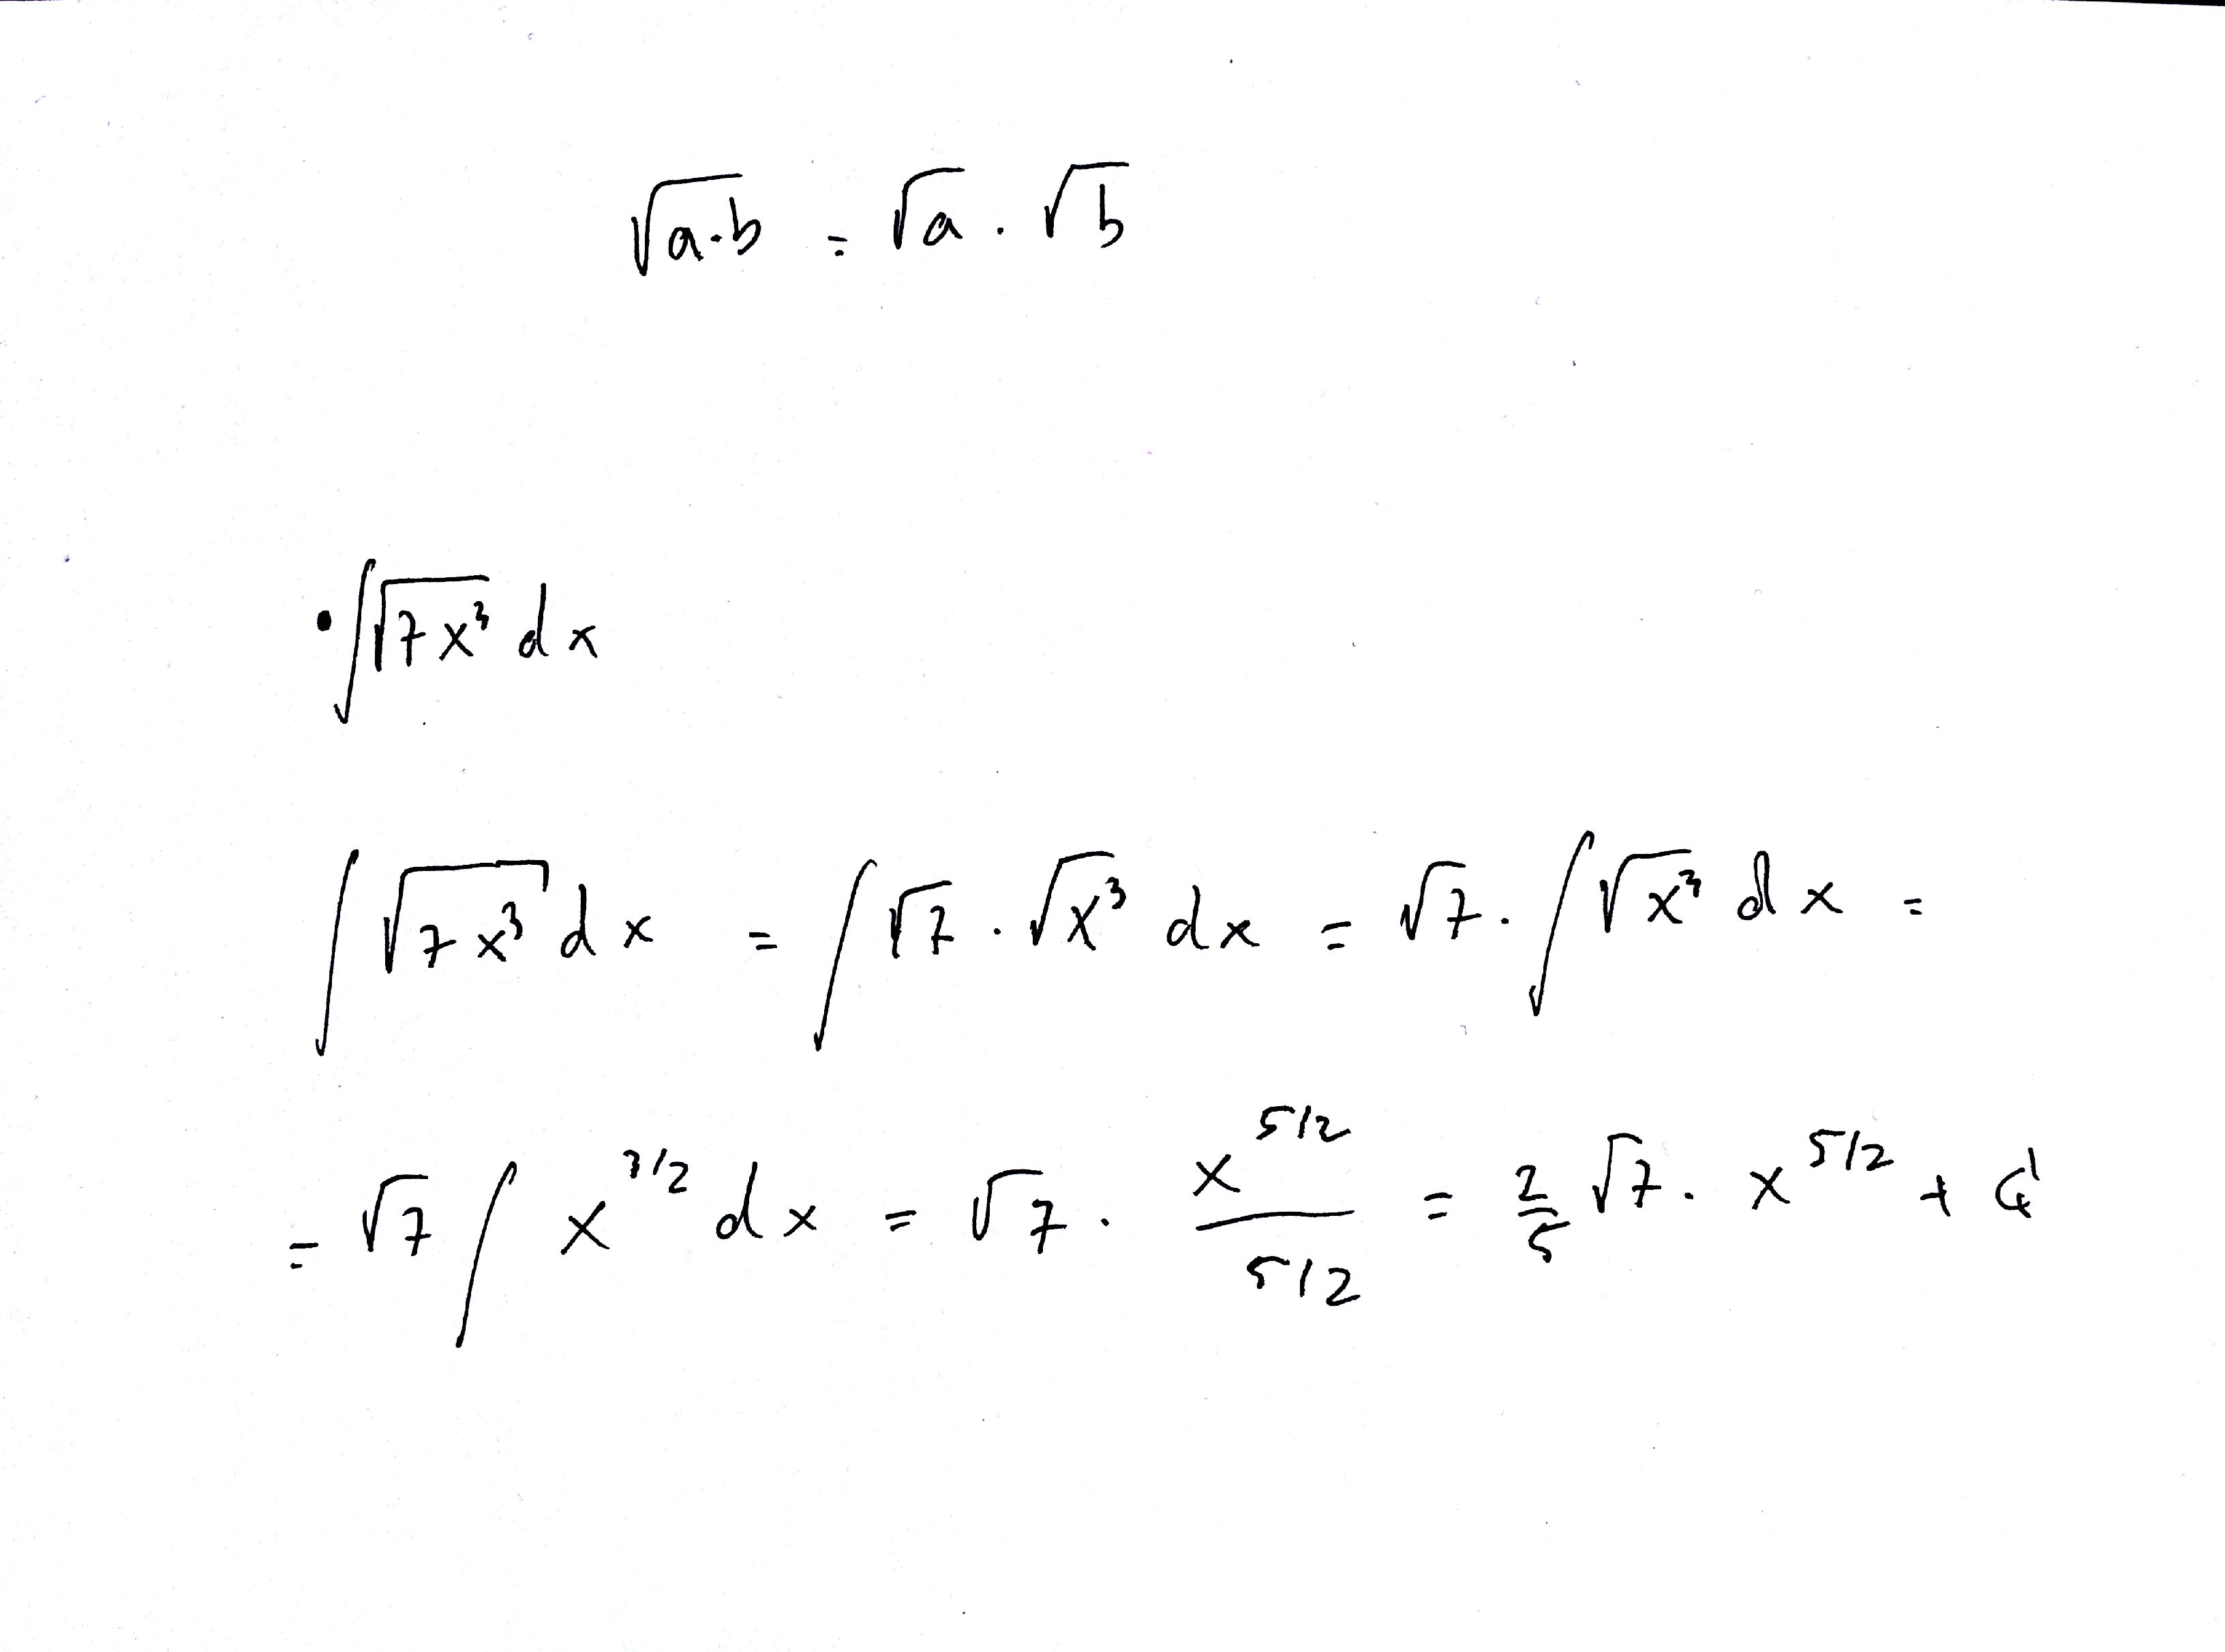 √(a·b) = √a · √b
• ∫√(7x³) dx
∫ √(7x³) dx = ∫ √7 · √x³ dx = √7 · ∫ √x³ dx =
= √7 ∫ x^(3/2) dx = √7 · x^(5/2) / (5/2) = 2/5 √7 · x^(5/2) + C